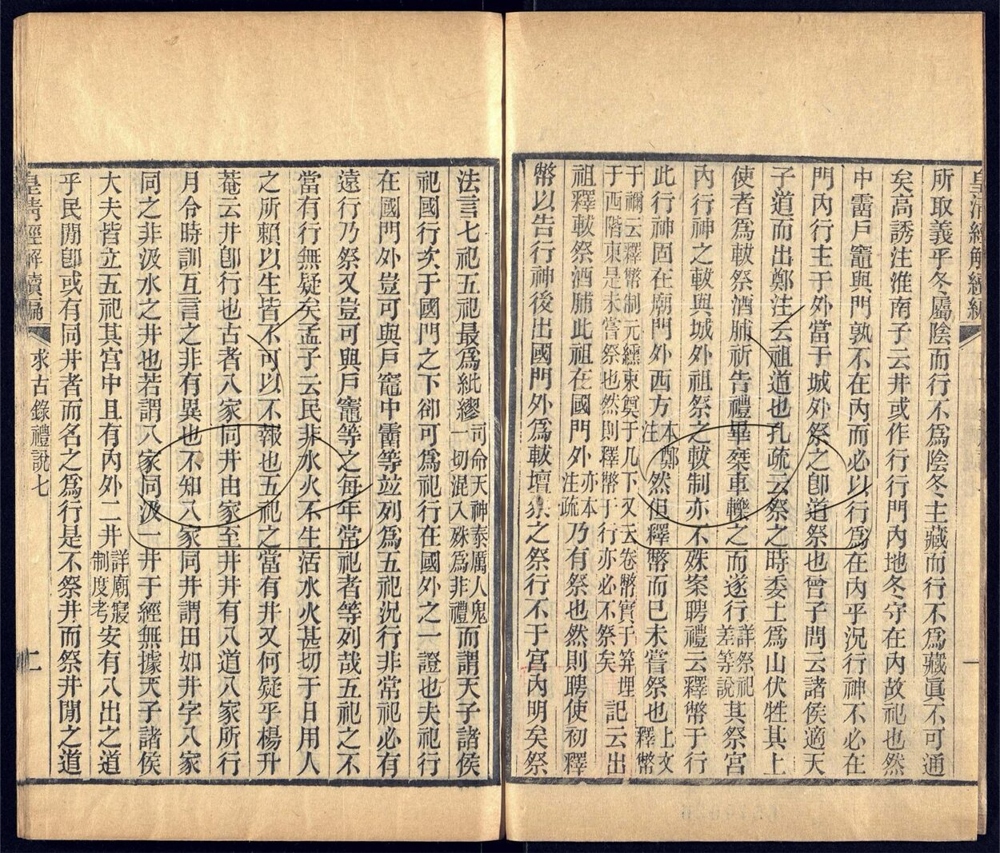 皇清經解續編
所取義乎冬屬陰而行不爲陰冬主藏而行不爲藏眞不可通
矣高誘注淮南子云井或作行行門內地冬守在內故祀也然
中霤戶竈與門孰不在內而必以行爲在內乎況行神不必在
門內行主于外當于城外祭之卽道祭也曾子問云諸侯適天
子道而出鄭注云祖道也孔疏云祭之時委土爲山伏牲其上
使者爲軷祭酒脯祈告禮畢乘車轢之而遂行詳祭祀差等說其祭宮
內行神之軷與城外祖祭之軷制亦不殊案聘禮云釋幣于行
此行神固在廟門外西方本鄭注然但釋幣而已未嘗祭也上文釋幣
于禰云釋幣制元纁束奠于几下又云卷幣實于笲埋
于西階東是未嘗祭也然則釋幣于行亦必不祭矣記云出
祖釋軷祭酒脯此祖在國門外亦本注疏乃有祭也然則聘使初釋
幣以告行神後出國門外爲軷壇祭之祭行不于宮內明矣祭
法言七祀五祀最爲紕繆司命天神泰厲人鬼一切混入殊爲非禮而謂天子諸侯
祀國行次于國門之下卻可爲祀行在國外之一證也夫祀行
在國門外豈可與戶竈中霤等竝列爲五祀況行非常祀必有
遠行乃祭又豈可與戶竈等之每年常祀者等列哉五祀之不
當有行無疑矣孟子云民非水火不生活水火甚切于日用人
之所賴以生皆不可以不報也五祀之當有井又何疑乎楊升
菴云井卽行也古者八家同井由家至井井有八道八家所行
月令時訓互言之非有異也不知八家同井謂田如井字八家
同之非汲水之井也若謂八家同汲一井于經無據天子諸侯
大夫皆立五祀其宮中且有內外二井詳廟寢制度考安有八出之道
乎民閒卽或有同井者而名之爲行是不祭井而祭井閒之道
皇淸經解續編
求古錄禮說七